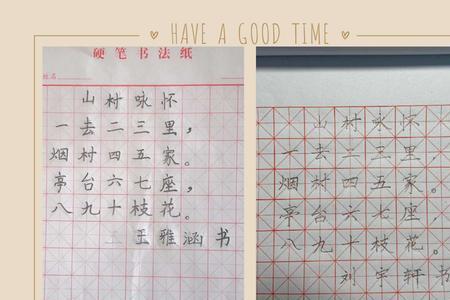 HAVE A GOOD TIME
硬笔书法纸
姓名
山村咏怀
一去二三里，
烟村四五家。
亭台六七座，
八九十枝花。
王雅涵书
山村咏怀
一去二三里
烟村四五家。
亭台六七座，
八九十枝花。
刘宇轩书